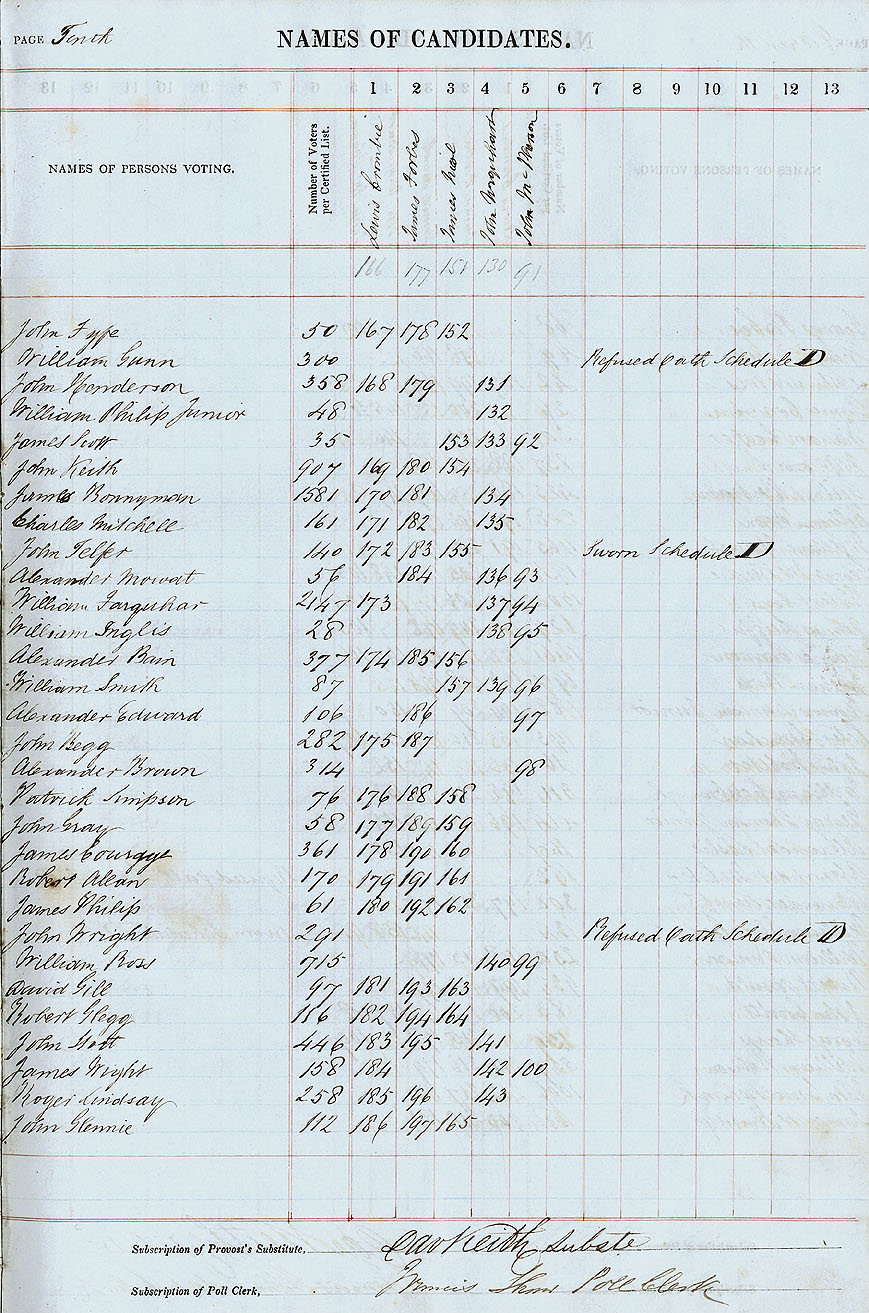 PAGE Tenth NAMES OF CANDIDATES.
1 2 3 4 5 6 7 8 9 10 11 12 13
NAMES OF PERSONS VOTING. Number of Voters per Certified List. Lewis Crombie James Forbes James Nicol John Urquhart John McPherson
166 177 151 130 91
John Fyfe 50 167 178 152
William Gunn 300 Refused Oath Schedule D
John Henderson 358 168 179 131
William Philip Junior 48 132
James Scott 35 153 133 92
John Keith 907 169 180 154
James Bonnyman 1581 170 181 134
Charles Mitchell 161 171 182 135
John Telfer 140 172 183 155 Sworn Schedule D
Alexander Mowat 56 184 136 93
William Farquhar 2147 173 137 94
William Inglis 28 138 95
Alexander Bain 377 174 185 156
William Smith 87 157 139 96
Alexander Edward 106 186 97
John Begg 282 175 187
Alexander Brown 314 98
Patrick Simpson 76 176 188 158
John Gray 58 177 189 159
James Courage 361 178 190 160
Robert Allan 170 179 191 161
James Philip 61 180 192 162
John Wright 291 Refused Oath Schedule D
William Ross 715 140 99
David Gill 97 181 193 163
Robert Glegg 116 182 194 164
John 446 183 195 141
James Wright 158 184 142 100
Roger Lindsay 258 185 196 143
John Glennie 112 186 197 165
Subscription of Provost's Substitute, Keith Subste
Subscription of Poll Clerk, Francis Shaw Poll Clerk